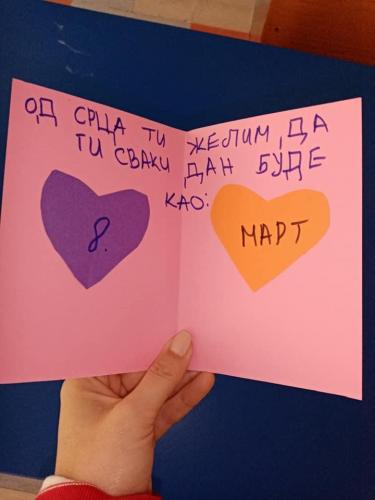 ОД СРЦА ТИ ЖЕЛИМ, ДА
ТИ СВАКИ ДАН БУДЕ
КАО:
8.
МАРТ